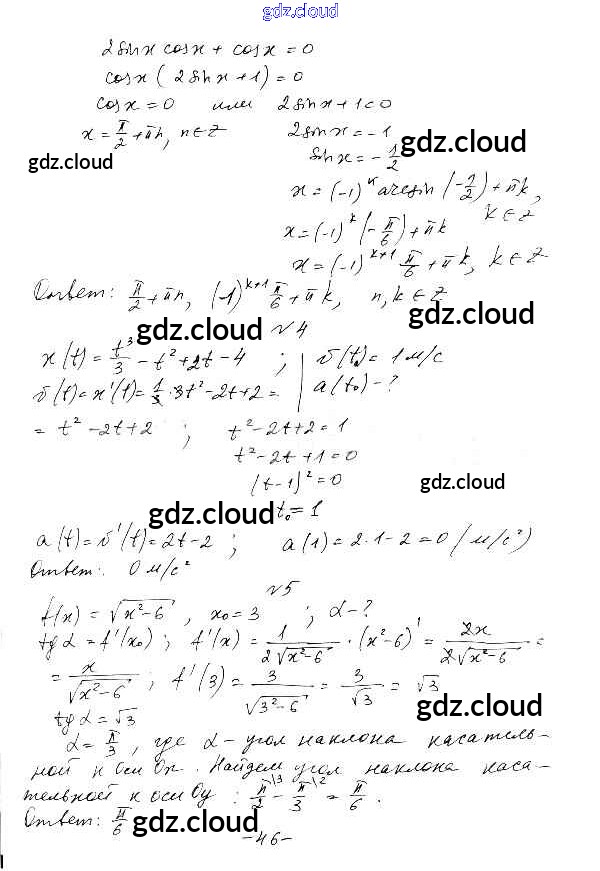 gdz.cloud
2sinx cosx + cosx = 0
cosx(2sinx+1) = 0
cosx = 0 или 2sinx+1=0
x = π/2 + πn, n∈Z 2sinx = -1
gdz.cloud gdz.cloud
sinx = -1/2
x = (-1)^k arcsin(-1/2) + πk,
k∈Z
x = (-1)^k (-π/6) + πk
x = (-1)^{k+1} π/6 + πk, k∈Z
Ответ: π/2 + πn, (-1)^{k+1} π/6 + πk, n,k∈Z
gdz.cloud gdz.cloud
№4
x(t) = t³/3 - t² + 2t - 4 ; v(t₀) = 1 м/с
v(t) = x'(t) = 1/3 · 3t² - 2t + 2 = a(t₀) - ?
= t² - 2t + 2 ; t² - 2t + 2 = 1
t² - 2t + 1 = 0
(t-1)² = 0
gdz.cloud
gdz.cloud t₀ = 1
a(t) = v'(t) = 2t - 2 ; a(1) = 2·1 - 2 = 0 (м/с²)
Ответ: 0 м/с²
№5
f(x) = √(x²-6) , x₀ = 3 ; α - ?
tg α = f'(x₀) ; f'(x) = 1/(2√(x²-6)) · (x²-6)' = 2x/(2√(x²-6)) =
= x/√(x²-6) ; f'(3) = 3/√(3²-6) = 3/√3 = √3
tg α = √3
gdz.cloud
α = π/3 , где α - угол наклона касатель-
ной к оси Ox. Найдем угол наклона каса-
тельной к оси Oy : π/2 \3 - π/3 \2 = π/6 .
Ответ: π/6
gdz.cloud gdz.cloud
-46-